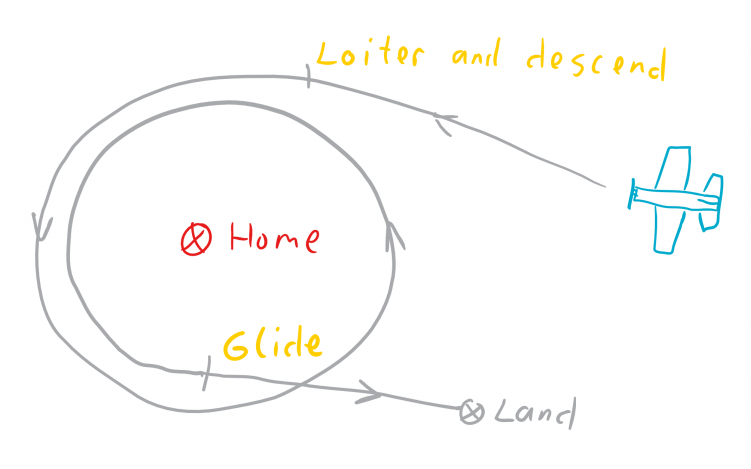 Loiter and descend
Home
Glide
Land